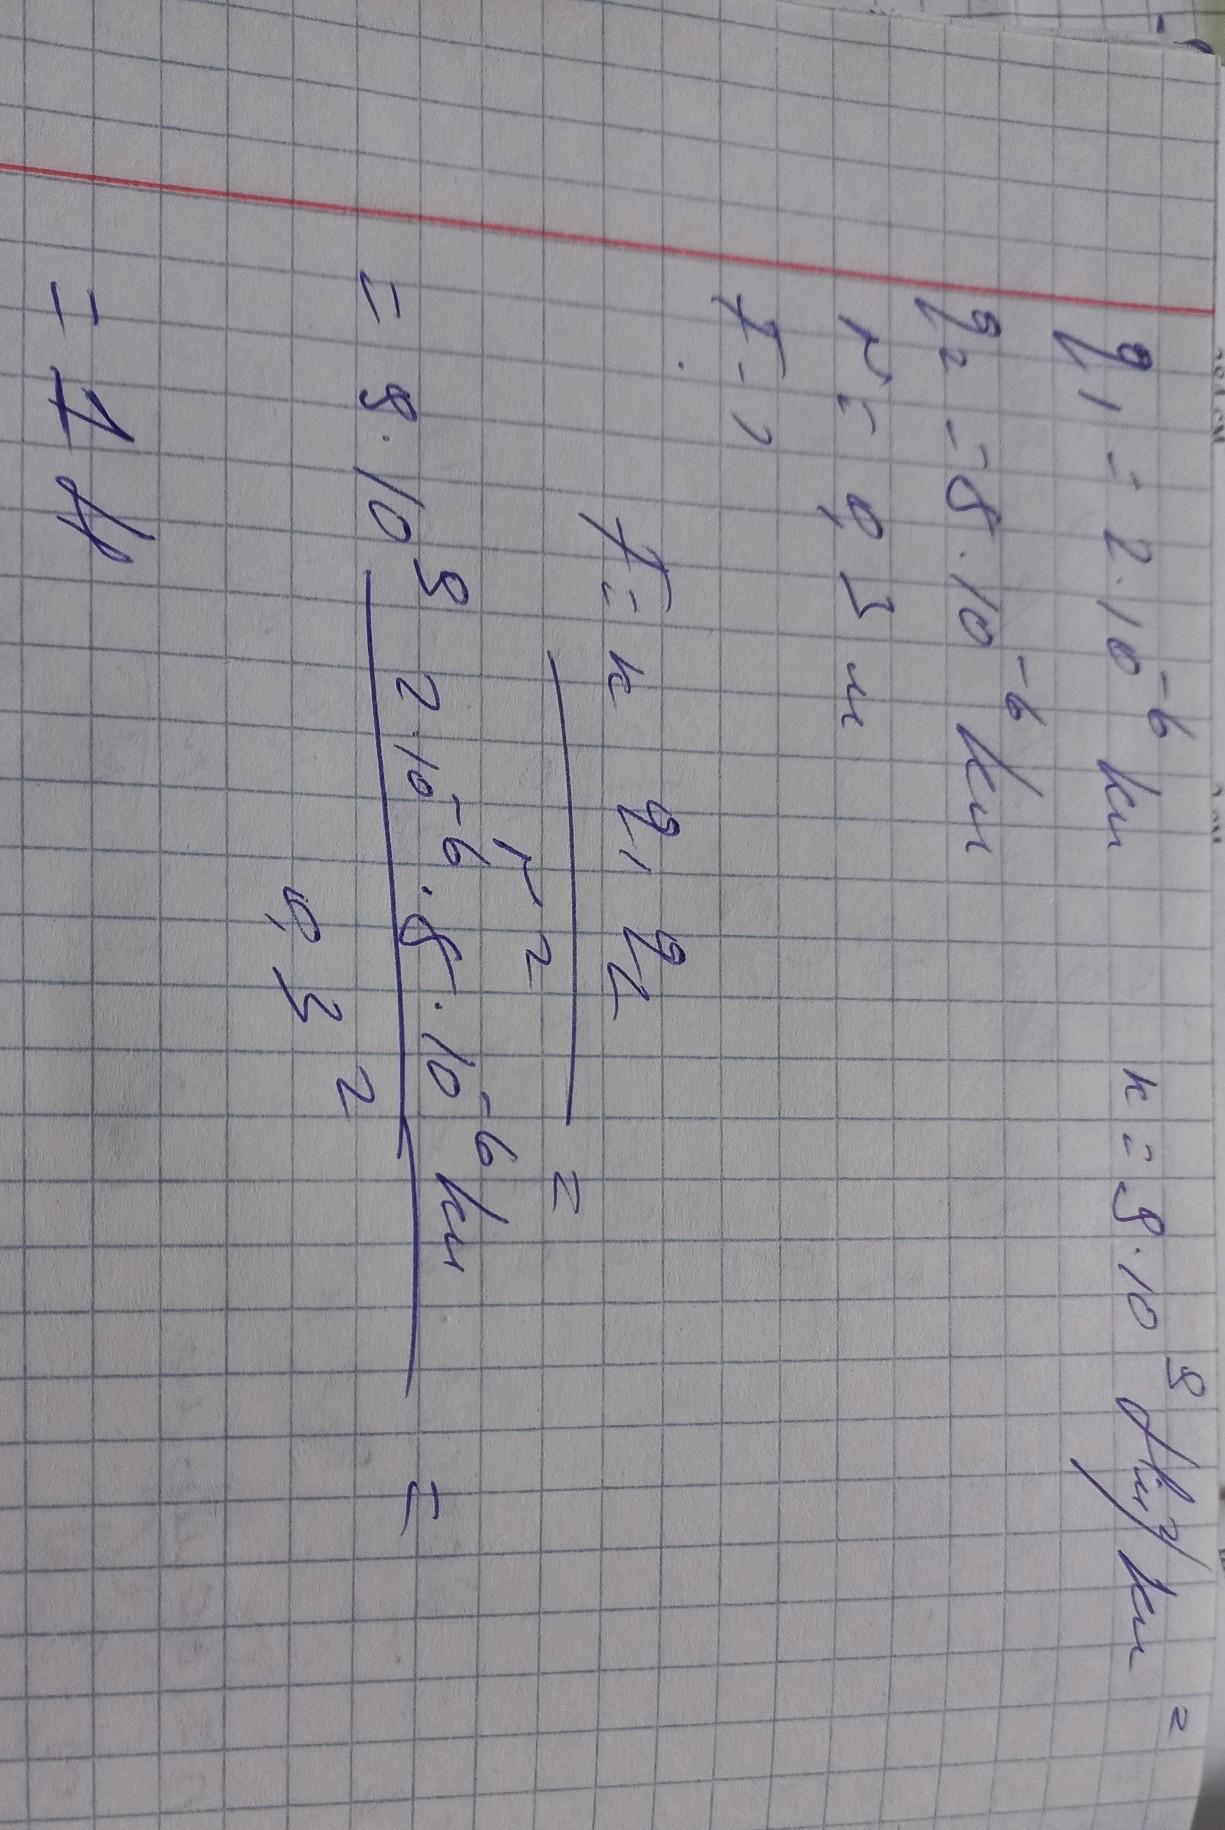 q₁ = 2·10⁻⁶ Кл k = 9·10⁹ Нм²/Кл²
q₂ = 5·10⁻⁶ Кл
r = 0,3 м
F - ?
F = k q₁ q₂
r² =
= 9·10⁹ 2·10⁻⁶·5·10⁻⁶ Кл =
0,3²
= 1 Н